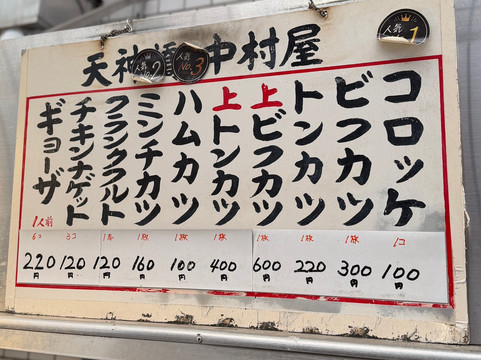 天神橋 中村屋
人気 No.2
人気 No.3
人気 1
コロッケ
1コ
100円
ビフカツ
1枚
300円
トンカツ
1枚
220円
上ビフカツ
1枚
600円
上トンカツ
1枚
400円
ハムカツ
1枚
100円
ミンチカツ
1枚
160円
フランクフルト
1本
120円
チキンナゲット
3コ
120円
ギョーザ
1人前
6コ
220円